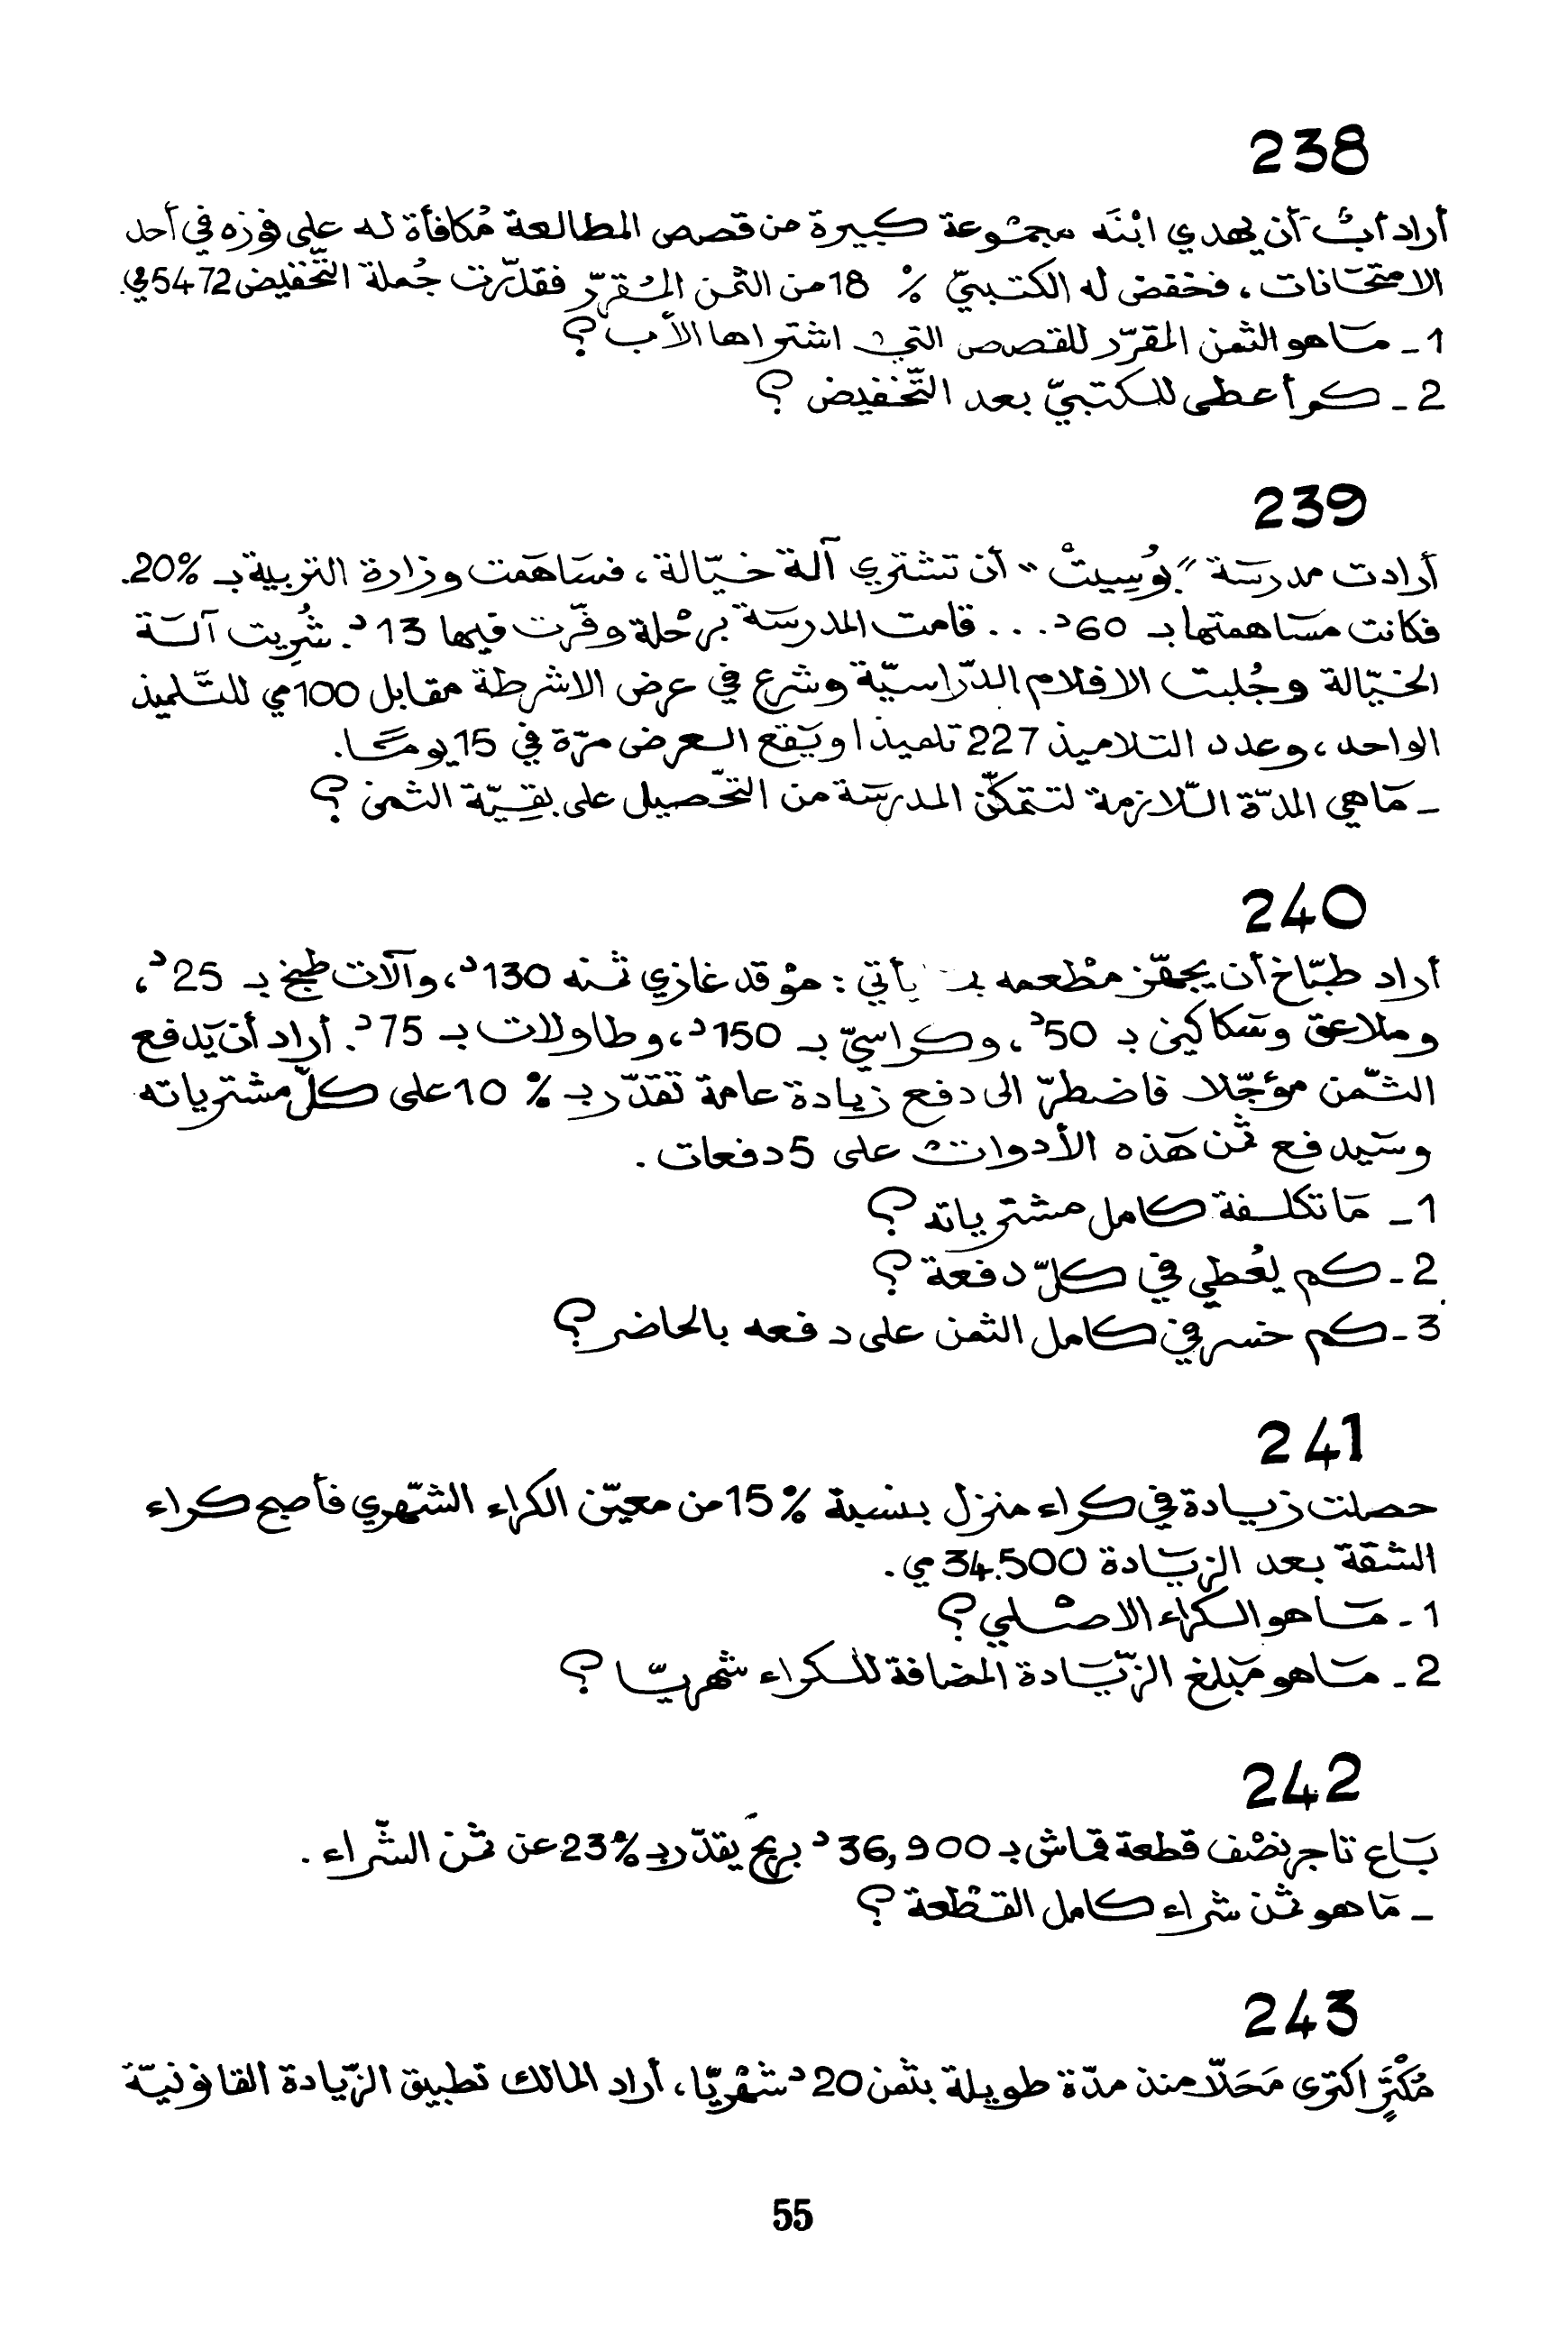 238
أراد أبٌ أن يهدي ابْنَه مجمُوعة كبيرة من قصص المطالعة مُكافأة له على فوزه في أحد
الامتحَانات ، فخفض له الكتبيّ % 18 من الثمن المُقرّر فقدّرت جُملة التّخفيض 5472مي.
1 - مَا هو الثمن المقرّر للقصص التي اشتراها الأب ؟
2 - كم أعطى للكتبيّ بعد التّخفيض ؟
239
أرادت مدرسَة "بُوسِيتْ" أن تشتري آلة خيّالة ، فسَاهَمت وزارة التربية بـ 20%.
فكانت مسَاهمتها بـ 60د . . . قامت المدرسَة برحْلة وفّرت فيها 13د. شُرِيت آلَة
الخيّالة وجُلبت الافلام الدّراسيّة وشرع في عرض الاشرطة مقابل 100مي للتّلميذ
الواحد ، وعدد التلاميذ 227 تلميذا ويَقع العرض مرّة في 15 يومًا.
- مَاهي المدّة اللّازمة لتتمكّن المدرسَة من التحّصيل على بقيّة الثمن ؟
240
أراد طبّاخ أن يجهّز مطْعمه بـ يأتي : موْقد غازي ثمنه 130د، وآلات طبخ بـ 25د،
وملاعق وسَكاكين بـ 50د ، وكراسيّ بـ 150د، وطاولات بـ 75د. أراد أن يَدفع
الثّمن مؤجّلا فاضطرّ الى دفع زيادة عامة تقدّر بـ % 10 على كلّ مشترياته
وسَيدفع ثمن هَذه الأدوات على 5 دفعات .
1 - مَا تكلفة كامل مشترياته ؟
2 - كم يُعْطي في كلّ دفعة ؟
3 - كم خسر في كامل الثمن على دفعه بالحاضر ؟
241
حصلت زيادة في كراء منزل بنسبة % 15 من معيّن الكراء الشّهري فأصبح كراء
الشقة بعد الزيَادة 34.500 مي .
1 - مَا هو الكراء الاصْلي ؟
2 - مَا هو مَبلغ الزّيَادة المضافة للكراء شهريّا ؟
242
بَاع تاجر نصْف قطعة قماش بـ 36,900د بربحٍ يقدّر بـ 23% عن ثمن الشّراء .
- مَا هو ثمن شراء كامل القطْعة ؟
243
مُكْتَرٍ اكترى مَحَلّا منذ مدّة طويلة بثمن 20د شهْريّا، أراد المالك تطبيق الزّيادة القانونيّة
55